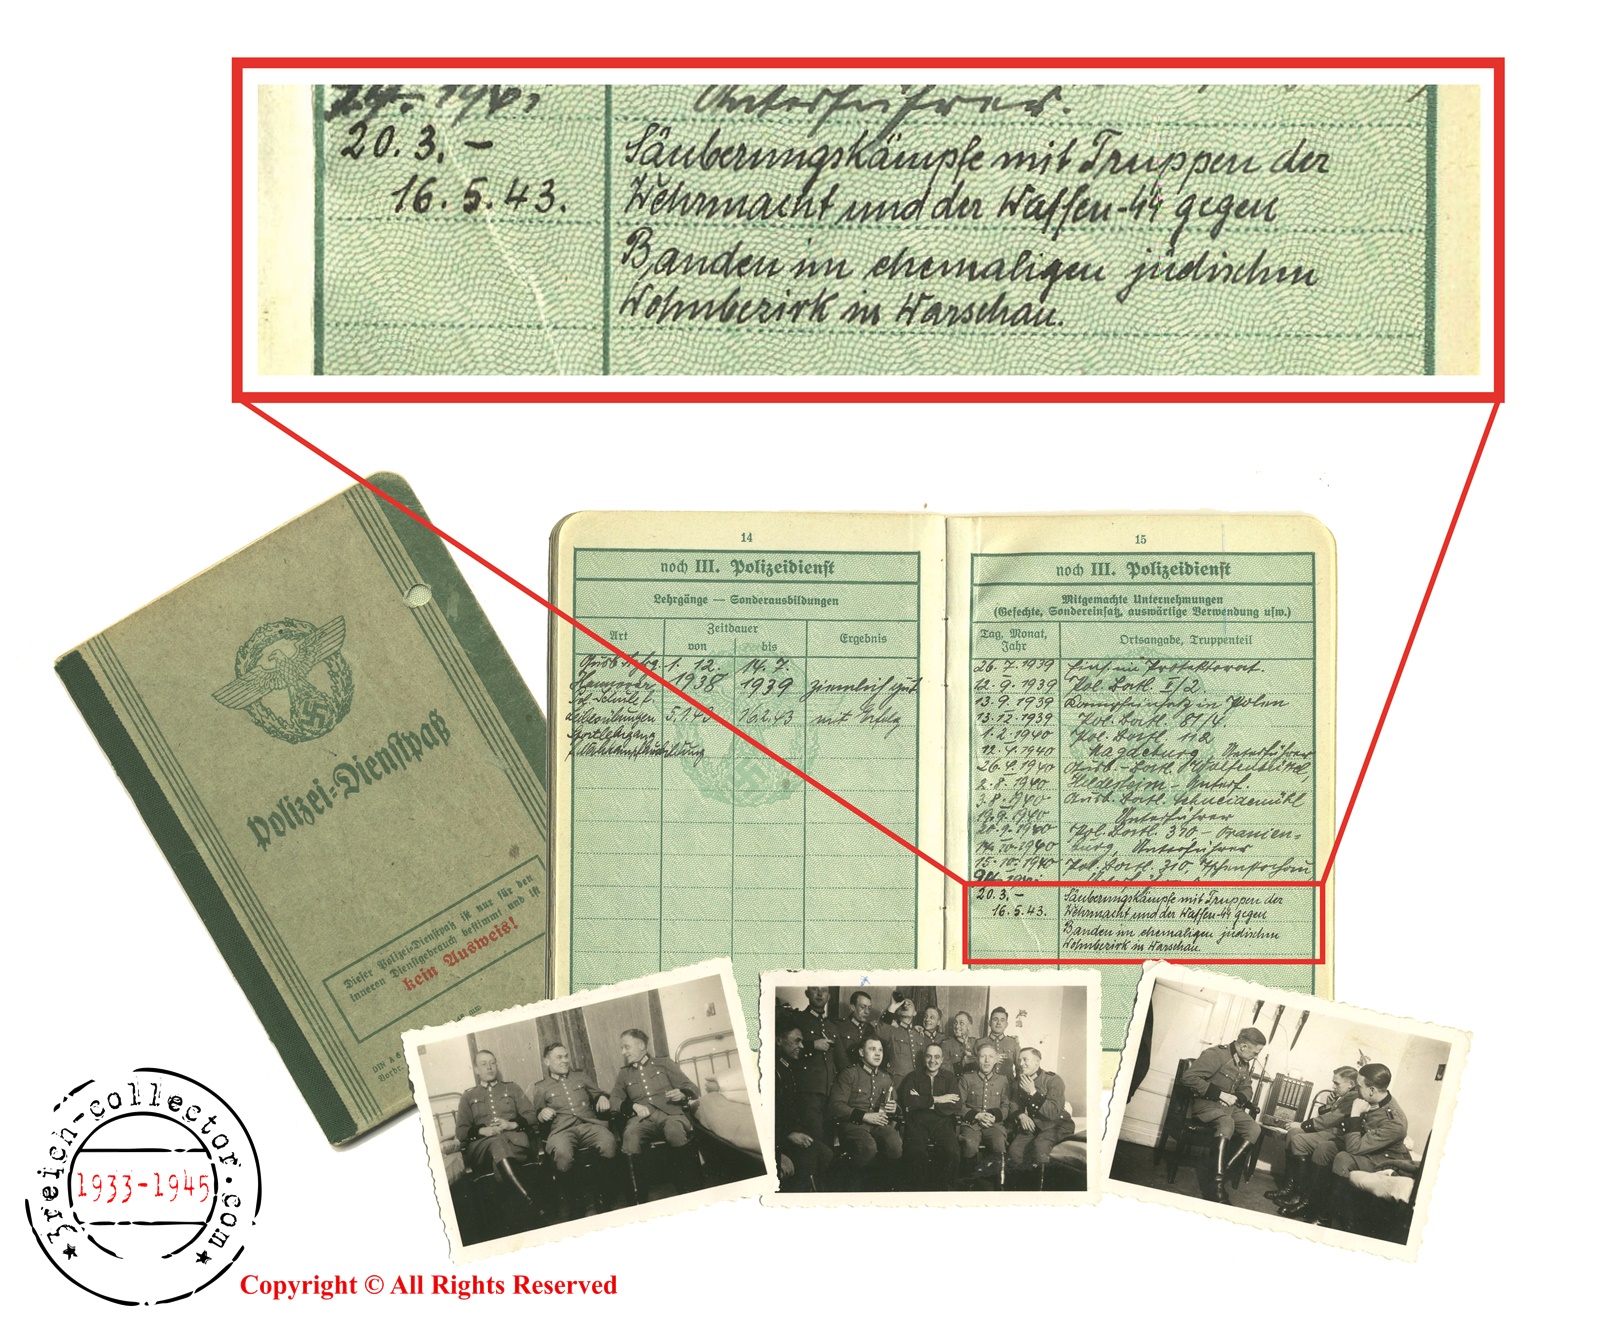 Unterführer.
20.3.- Säuberungskämpfe mit Truppen der
16.5.43. Wehrmacht und der Waffen-SS gegen
Banden im ehemaligen jüdischen
Wohnbezirk in Warschau.
Polizei-Dienstpaß
Dieser Polizei-Dienstpaß ist nur für den
inneren Dienstgebrauch bestimmt und ist
kein Ausweis!
14
noch III. Polizeidienst
Lehrgänge — Sonderausbildungen
Art Zeitdauer Ergebnis
von bis
1. 12. 14. 7.
Hannover 1938 1939 ziemlich gut
5.1.43 16.2.43 mit Erfolg
15
noch III. Polizeidienst
Mitgemachte Unternehmungen
(Gefechte, Sondereinsatz, auswärtige Verwendung usw.)
Tag, Monat, Jahr Ortsangabe, Truppenteil
26.7.1939 Eins. im Protektorat.
12.9.1939 Pol. Batl. I/2
13.9.1939 Kampfeinsatz in Polen
13.12.1939 Pol. Batl.
1.2.1940 Pol. Batl.
12.4.1940 Magdeburg Unterführer
26.4.1940 Ausb.-Batl.
2.8.1940 Hildesheim - Unterf.
3.8.1940 Ausb. Batl. Schneidemühl
19.9.1940 Unterführer
20.9.1940 Pol. Batl. 310 - Oranien-
1940 burg, Unterführer
15.10.1940 Pol. Batl. 310, Tschenstochau
20.3.- Säuberungskämpfe mit Truppen der
16.5.43. Wehrmacht und der Waffen-SS gegen
Banden im ehemaligen jüdischen
Wohnbezirk in Warschau.
3reich-collector.com
1933-1945
Copyright © All Rights Reserved